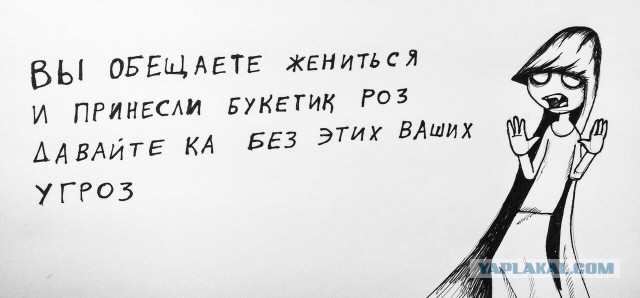 ВЫ ОБЕЩАЕТЕ ЖЕНИТЬСЯ
И ПРИНЕСЛИ БУКЕТИК РОЗ
ДАВАЙТЕ КА БЕЗ ЭТИХ ВАШИХ
УГРОЗ
YAPLAKAL.COM